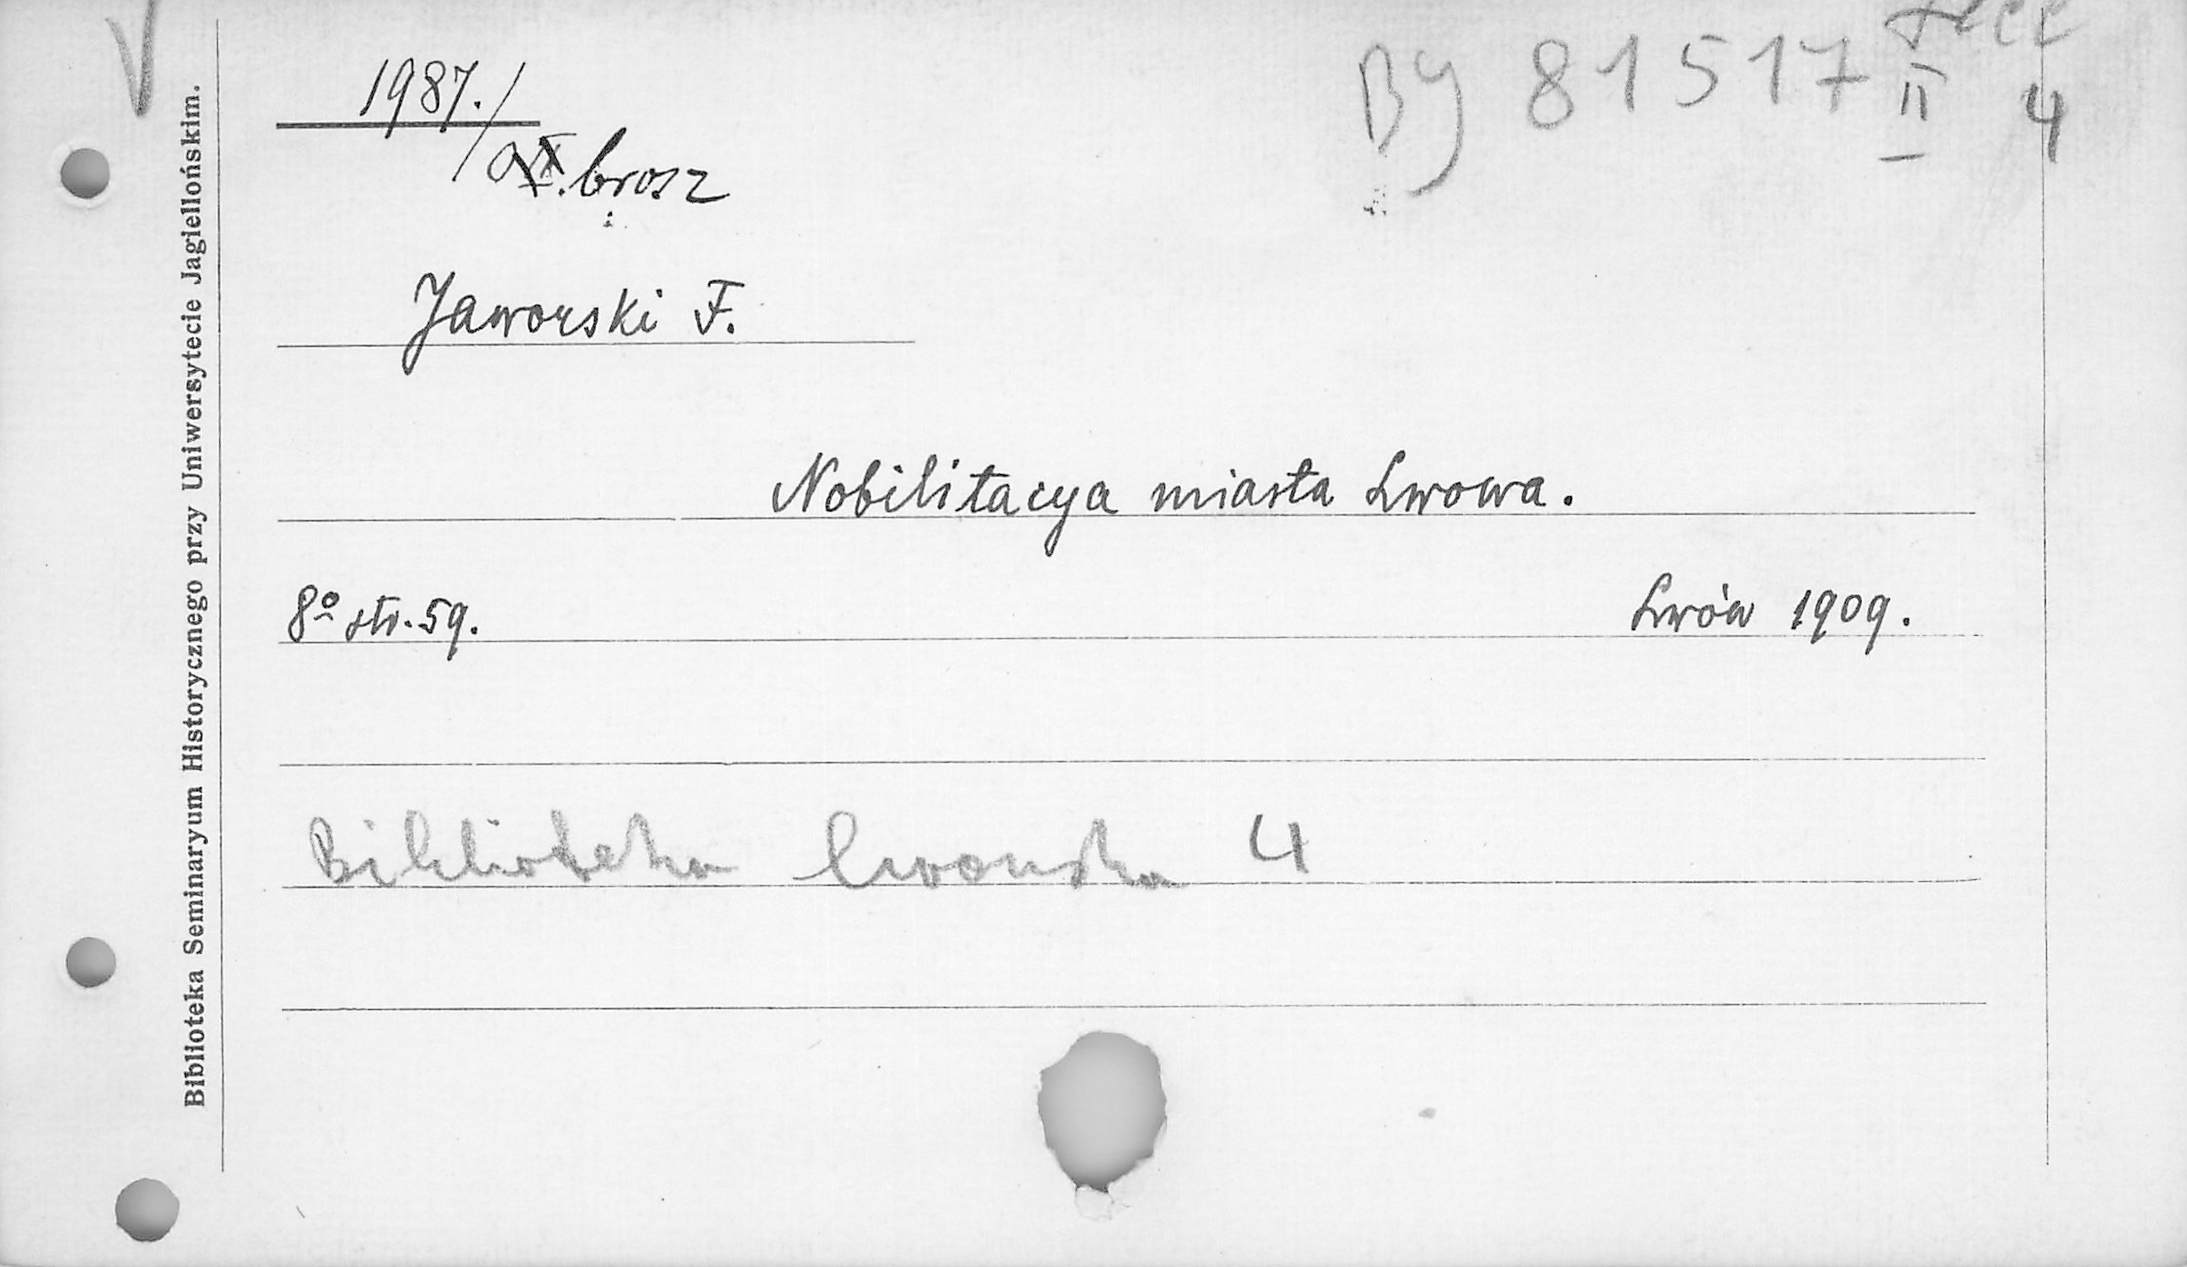 Bj 81517 II 4
1987./
brosz
Jaworski F.
Nobilitacya miasta Lwowa.
8º str. 59. Lwów 1909.
Biblioteka lwowska 4
Biblioteka Seminaryum Historycznego przy Uniwersytecie Jagiellońskim.